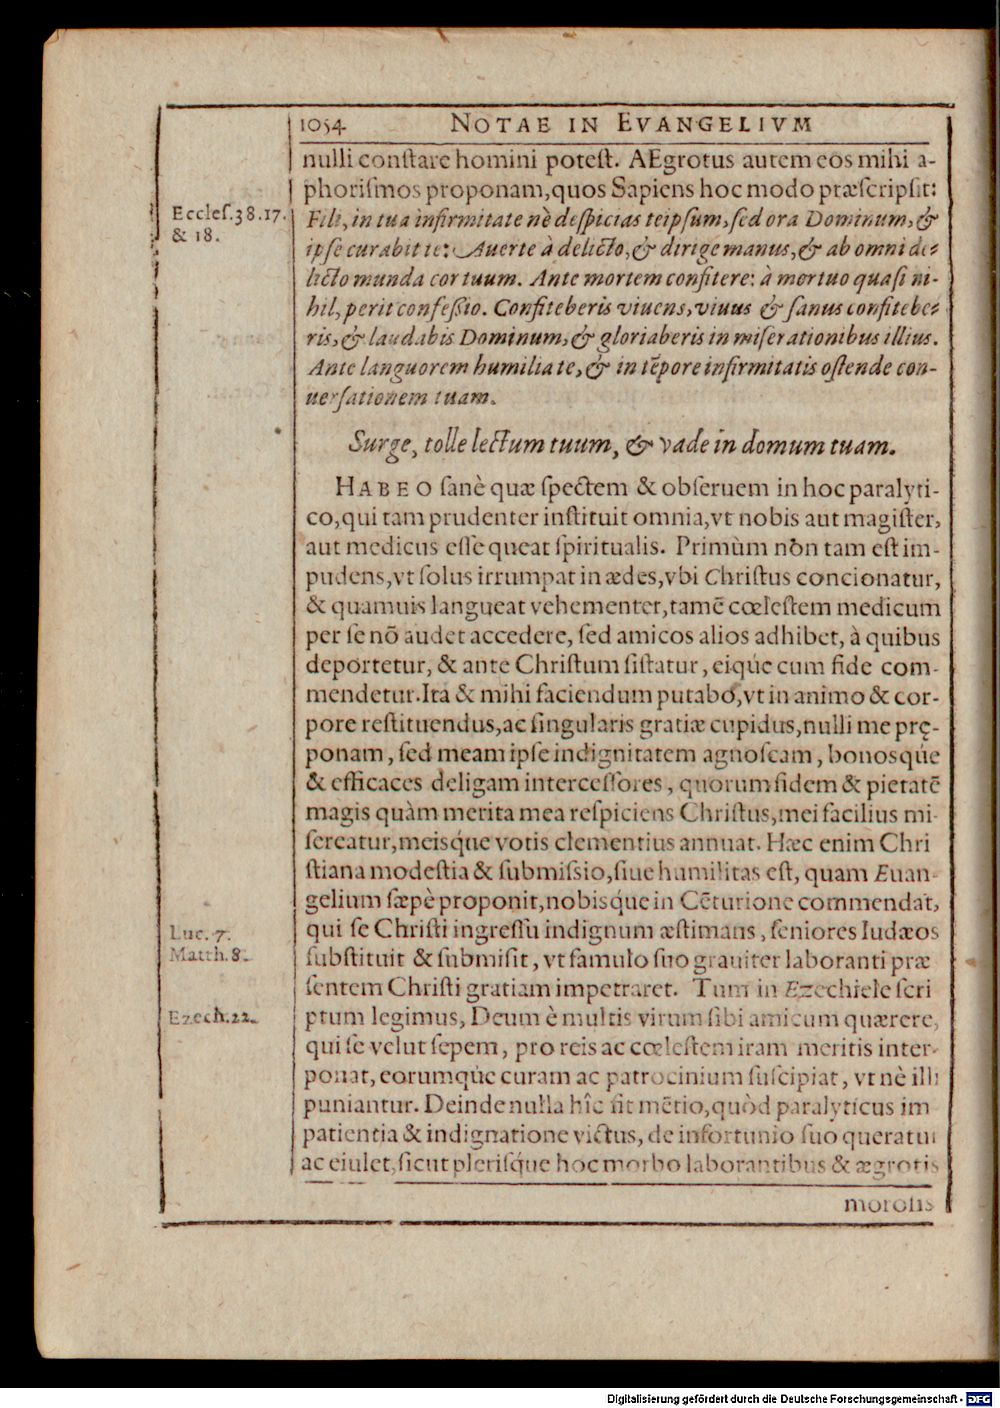 1054 NOTAE IN EVANGELIVM
nulli conſtare homini poteſt. AEgrotus autem eos mihi a-
phoriſmos proponam, quos Sapiens hoc modo præſcripſit:
Eccleſ. 38. 17.
& 18.
Fili, in tua infirmitate nè deſpicias teipſum, ſed ora Dominum, &
ipſe curabit te: Auerte à delicto, & dirige manus, & ab omni de-
licto munda cor tuum. Ante mortem confitere: à mortuo quaſi ni-
hil, perit confeſſio. Confiteberis viuens, viuus & ſanus confitebe-
ris, & laudabis Dominum, & gloriaberis in miſerationibus illius.
Ante languorem humilia te, & in tẽpore infirmitatis oſtende con-
uerſationem tuam.
Surge, tolle lectum tuum, & vade in domum tuam.
HABEO ſanè quæ ſpectem & obſeruem in hoc paralyti-
co, qui tam prudenter inſtituit omnia, vt nobis aut magiſter,
aut medicus eſſe queat ſpiritualis. Primùm non tam eſt im-
pudens, vt ſolus irrumpat in ædes, vbi Chriſtus concionatur,
& quamuis langueat vehementer, tamẽ cœleſtem medicum
per ſe nõ audet accedere, ſed amicos alios adhibet, à quibus
deportetur, & ante Chriſtum ſiſtatur, eiq́ue cum fide com-
mendetur. Ita & mihi faciendum putabo, vt in animo & cor-
pore reſtituendus, ac ſingularis gratiæ cupidus, nulli me prę-
ponam, ſed meam ipſe indignitatem agnoſcam, bonosq́ue
& efficaces deligam interceſſores, quorum fidem & pietatẽ
magis quàm merita mea reſpiciens Chriſtus, mei facilius mi-
ſereatur, meisq́ue votis clementius annuat. Hæc enim Chri
ſtiana modeſtia & ſubmiſsio, ſiue humilitas eſt, quam Euan-
gelium ſæpè proponit, nobisq́ue in Cẽturione commendat,
Luc. 7.
Matth. 8.
qui ſe Chriſti ingreſſu indignum æſtimans, ſeniores Iudæos
ſubſtituit & ſubmiſit, vt famulo ſuo grauiter laboranti præ
ſentem Chriſti gratiam impetraret. Tum in Ezechiele ſcri
Ezech. 22.
ptum legimus, Deum è multis virum ſibi amicum quærere,
qui ſe velut ſepem, pro reis ac cœleſtem iram meritis inter-
ponat, eorumq́ue curam ac patrocinium ſuſcipiat, vt nè illi
puniantur. Deinde nulla hîc fit mẽtio, quòd paralyticus im
patientia & indignatione victus, de infortunio ſuo queratur
ac eiulet, ſicut pleriſq́ue hoc morbo laborantibus & ægrotis
moroſis
Digitalisierung gefördert durch die Deutsche Forschungsgemeinschaft - DFG